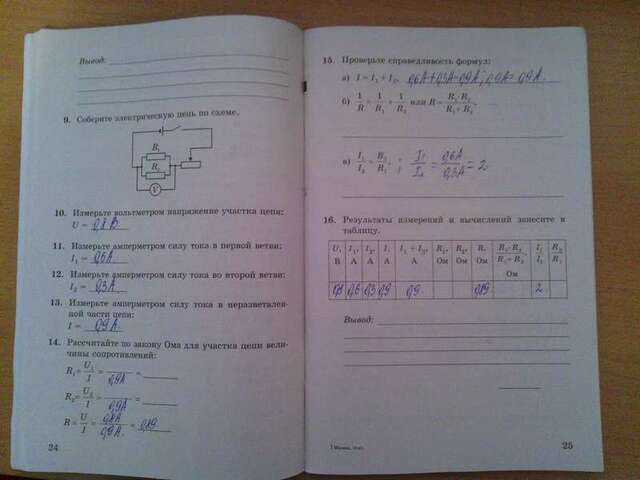 Вывод:
9. Соберите электрическую цепь по схеме.
R₁
R₂
V
10. Измерьте вольтметром напряжение участка цепи:
U = 0,8 В
11. Измерьте амперметром силу тока в первой ветви:
I₁ = 0,6А
12. Измерьте амперметром силу тока во второй ветви:
I₂ = 0,3А
13. Измерьте амперметром силу тока в неразветвлен-
ной части цепи:
I = 0,9А.
14. Рассчитайте по закону Ома для участка цепи вели-
чины сопротивлений:
R₁ = U₁/I = /0,9А =
R₂ = U₂/I = /0,9А =
R = U/I = 0,8А/0,9А. = 0,89.
24
15. Проверьте справедливость формул:
а) I = I₁ + I₂, 0,6А+0,3А=0,9А; 0,9А=0,9А.
б) 1/R = 1/R₁ + 1/R₂ или R = R₁·R₂/R₁+R₂.
в) I₁/I₂ = R₂/R₁. ; I₁/I₂ = 0,6А/0,3А = 2.
16. Результаты измерений и вычислений занесите в
таблицу.
U, В I₁, А I₂, А I, А I₁ + I₂, А R₁, Ом R₂, Ом R, Ом R₁·R₂/R₁+R₂ Ом I₁/I₂ R₂/R₁
0,8 0,6 0,3 0,9 0,9. 0,89. 2.
Вывод:
25